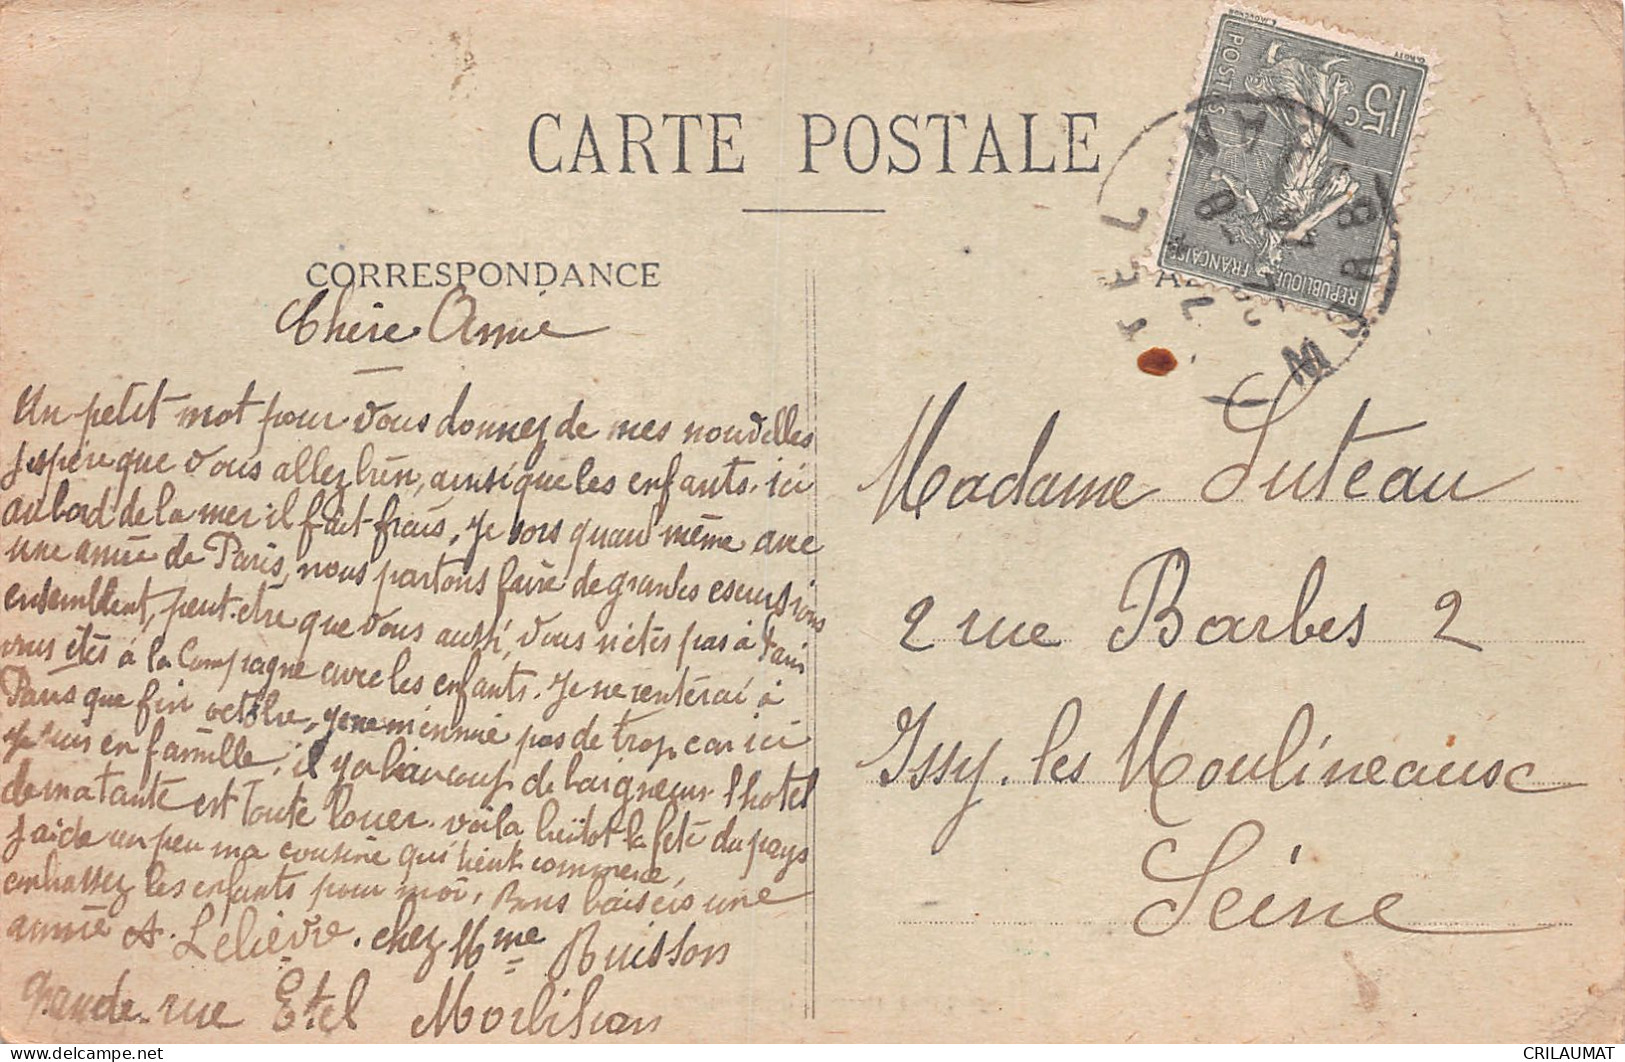 CARTE POSTALE
CORRESPONDANCE
E. MOUCHON
O. ROTY
POSTES
15c
REPUBLIQUE FRANÇAISE
ETEL
Chère Amie
Un petit mot pour vous donnez de mes nouvelles
J'espère que vous allez bien, ainsi que les enfants. ici
au bord de la mer il fait frais, je sors quand même avec
une amie de Paris, nous partons faire de grandes escursions
ensemblent, peut-être que vous aussi, vous n'êtes pas à Paris
vous êtes à la Campagne avec les enfants. Je ne rentérai à
Paris que fin octobre, je ne m'ennuie pas de trop car ici
je suis en famille, il y a beaucoup de baigneur l'hotel
de ma tante est toute louer. voila bientot la fete du pays
j'aide un peu ma cousine qui tient commerce,
embrassez les enfants pour moi, Bons baisers une
amie A. Lelièvre. chez Mme Buisson
grande rue Etel Morbihan
Madame Luteau
2 rue Barbes 2
Issy. les Moulineause
Seine
CRILAUMAT
delcampe.net